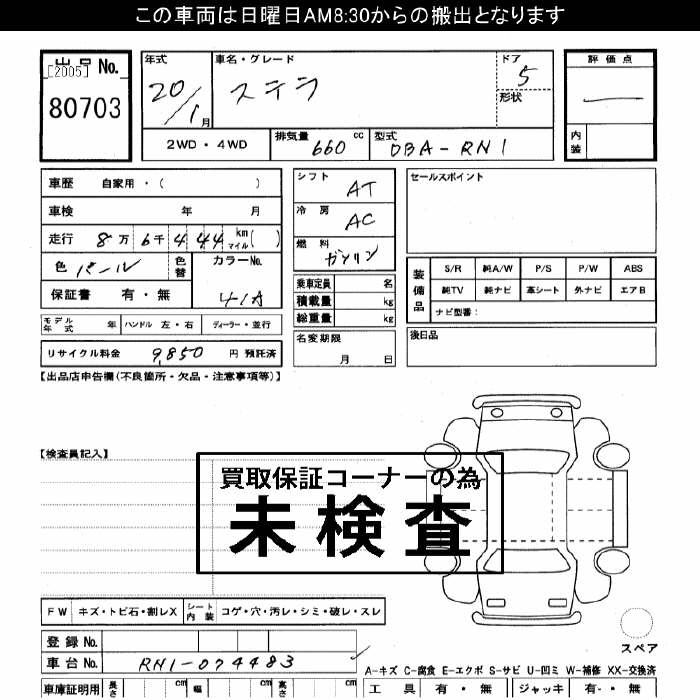 この車両は日曜日AM8:30からの搬出となります
出品 No.
[2005]
80703
年式
20/1月
車名・グレード
ステラ
ドア
5
形状
評価点
―
内装
2WD・4WD
排気量 660 cc
型式 DBA-RN1
車歴 自家用・( )
車検 年 月
走行 8万 6千 444 km マイル( )
色 パール
色替
カラーNo.
41A
保証書 有・無
モデル年式 年 ハンドル 左・右 ディーラー・並行
リサイクル料金 9,850 円 預託済
シフト AT
冷房 AC
燃料 ガソリン
乗車定員 名
積載量 kg
総重量 kg
名変期限
月 日
セールスポイント
装備品
S/R 純A/W P/S P/W ABS
純TV 純ナビ 革シート 外ナビ エアB
ナビ型番:
後日品
【出品店申告欄(不良箇所・欠品・注意事項等)】
【検査員記入】
買取保証コーナーの為
未検査
FW キズ・トビ石・割レX シート内装 コゲ・穴・汚レ・シミ・破レ・スレ
登録 No.
車台 No. RN1-074483
スペア
A-キズ C-腐食 E-エクボ S-サビ U-凹ミ W-補修 XX-交換済
車庫証明用 長さ cm 幅 cm 高さ cm
工具 有・無 ジャッキ 有・無